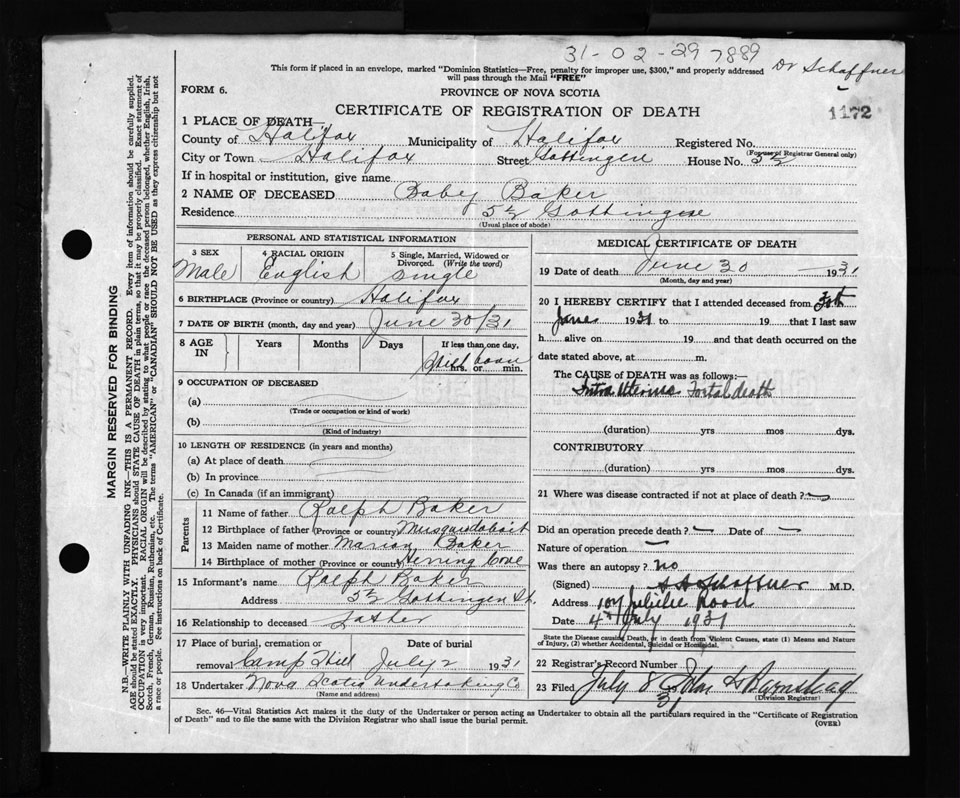 31-02-29 7889
Dr Schaffner
This form if placed in an envelope, marked "Dominion Statistics—Free, penalty for improper use, $300," and properly addressed
will pass through the Mail "FREE"
FORM 6.
PROVINCE OF NOVA SCOTIA
CERTIFICATE OF REGISTRATION OF DEATH
1172
1 PLACE OF DEATH—
County of Halifax Municipality of Halifax Registered No.
(For use of Registrar General only)
City or Town Halifax Street Gottingen House No. 5½
If in hospital or institution, give name
2 NAME OF DECEASED Baby Baker
Residence 5½ Gottingen
(Usual place of abode)
PERSONAL AND STATISTICAL INFORMATION
3 SEX
Male
4 RACIAL ORIGIN
English
5 Single, Married, Widowed or
Divorced. (Write the word)
Single
6 BIRTHPLACE (Province or country) Halifax
7 DATE OF BIRTH (month, day and year) June 30/31
8 AGE IN Years Months Days If less than one day,
Still born
hrs. or min.
9 OCCUPATION OF DECEASED
(a)
(Trade or occupation or kind of work)
(b)
(Kind of industry)
10 LENGTH OF RESIDENCE (in years and months)
(a) At place of death
(b) In province
(c) In Canada (if an immigrant)
Parents
11 Name of father Ralph Baker
12 Birthplace of father (Province or country) Musquodoboit
13 Maiden name of mother Marion Baker
14 Birthplace of mother (Province or country) Herring Cove
15 Informant's name Ralph Baker
Address 5½ Gottingen St.
16 Relationship to deceased father
17 Place of burial, cremation or Date of burial
removal Camp Hill July 2 1931
18 Undertaker Nova Scotia Undertaking Co
(Name and address)
MEDICAL CERTIFICATE OF DEATH
19 Date of death June 30 — 1931
(Month, day and year)
20 I HEREBY CERTIFY that I attended deceased from
June 1931 to 19 that I last saw
h alive on 19 and that death occurred on the
date stated above, at m.
The CAUSE of DEATH was as follows:—
Intra Uterine Foetal death
(duration) yrs mos dys.
CONTRIBUTORY
(duration) yrs mos dys.
21 Where was disease contracted if not at place of death? —
Did an operation precede death? — Date of —
Nature of operation —
Was there an autopsy? No
(Signed) Schaffner M.D.
Address Road
Date 4th July 1931
State the Disease causing Death, or in death from Violent Causes, state (1) Means and Nature
of Injury, (2) whether Accidental, Suicidal or Homicidal.
22 Registrar's Record Number
23 Filed July 8 31 John
(Division Registrar)
Sec. 46—Vital Statistics Act makes it the duty of the Undertaker or person acting as Undertaker to obtain all the particulars required in the "Certificate of Registration
of Death" and to file the same with the Division Registrar who shall issue the burial permit.
(OVER)
MARGIN RESERVED FOR BINDING
N.B.—WRITE PLAINLY WITH UNFADING INK—THIS IS A PERMANENT RECORD. Every item of information should be carefully supplied.
AGE should be stated EXACTLY. PHYSICIANS should STATE CAUSE OF DEATH in plain terms, so that it may be properly classified. Exact statement of
OCCUPATION is very important. RACIAL ORIGIN will be described by stating to what people or race the deceased person belonged, whether English, Irish,
Scotch, French, German, Russian, Ruthenian, etc. The terms "AMERICAN" or "CANADIAN" SHOULD NOT BE USED as they express citizenship but not
a race or people. See instructions on back of Certificate.